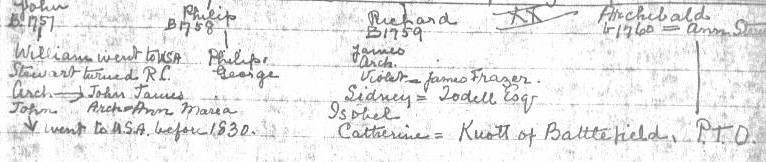 John
B.1751
William went to USA
Stewart turned R.C.
Arch → John James
John Arch = Ann Maria
went to U.S.A. before 1830.
Philip
B1758
Philip.
George
Richard
B1759
James
Arch.
Violet = James Frazer.
Sidney = Todell Esq
Isobel
Catherine = Knott of Battlefield, P.T.O.
Archibald
b 1760 = Ann